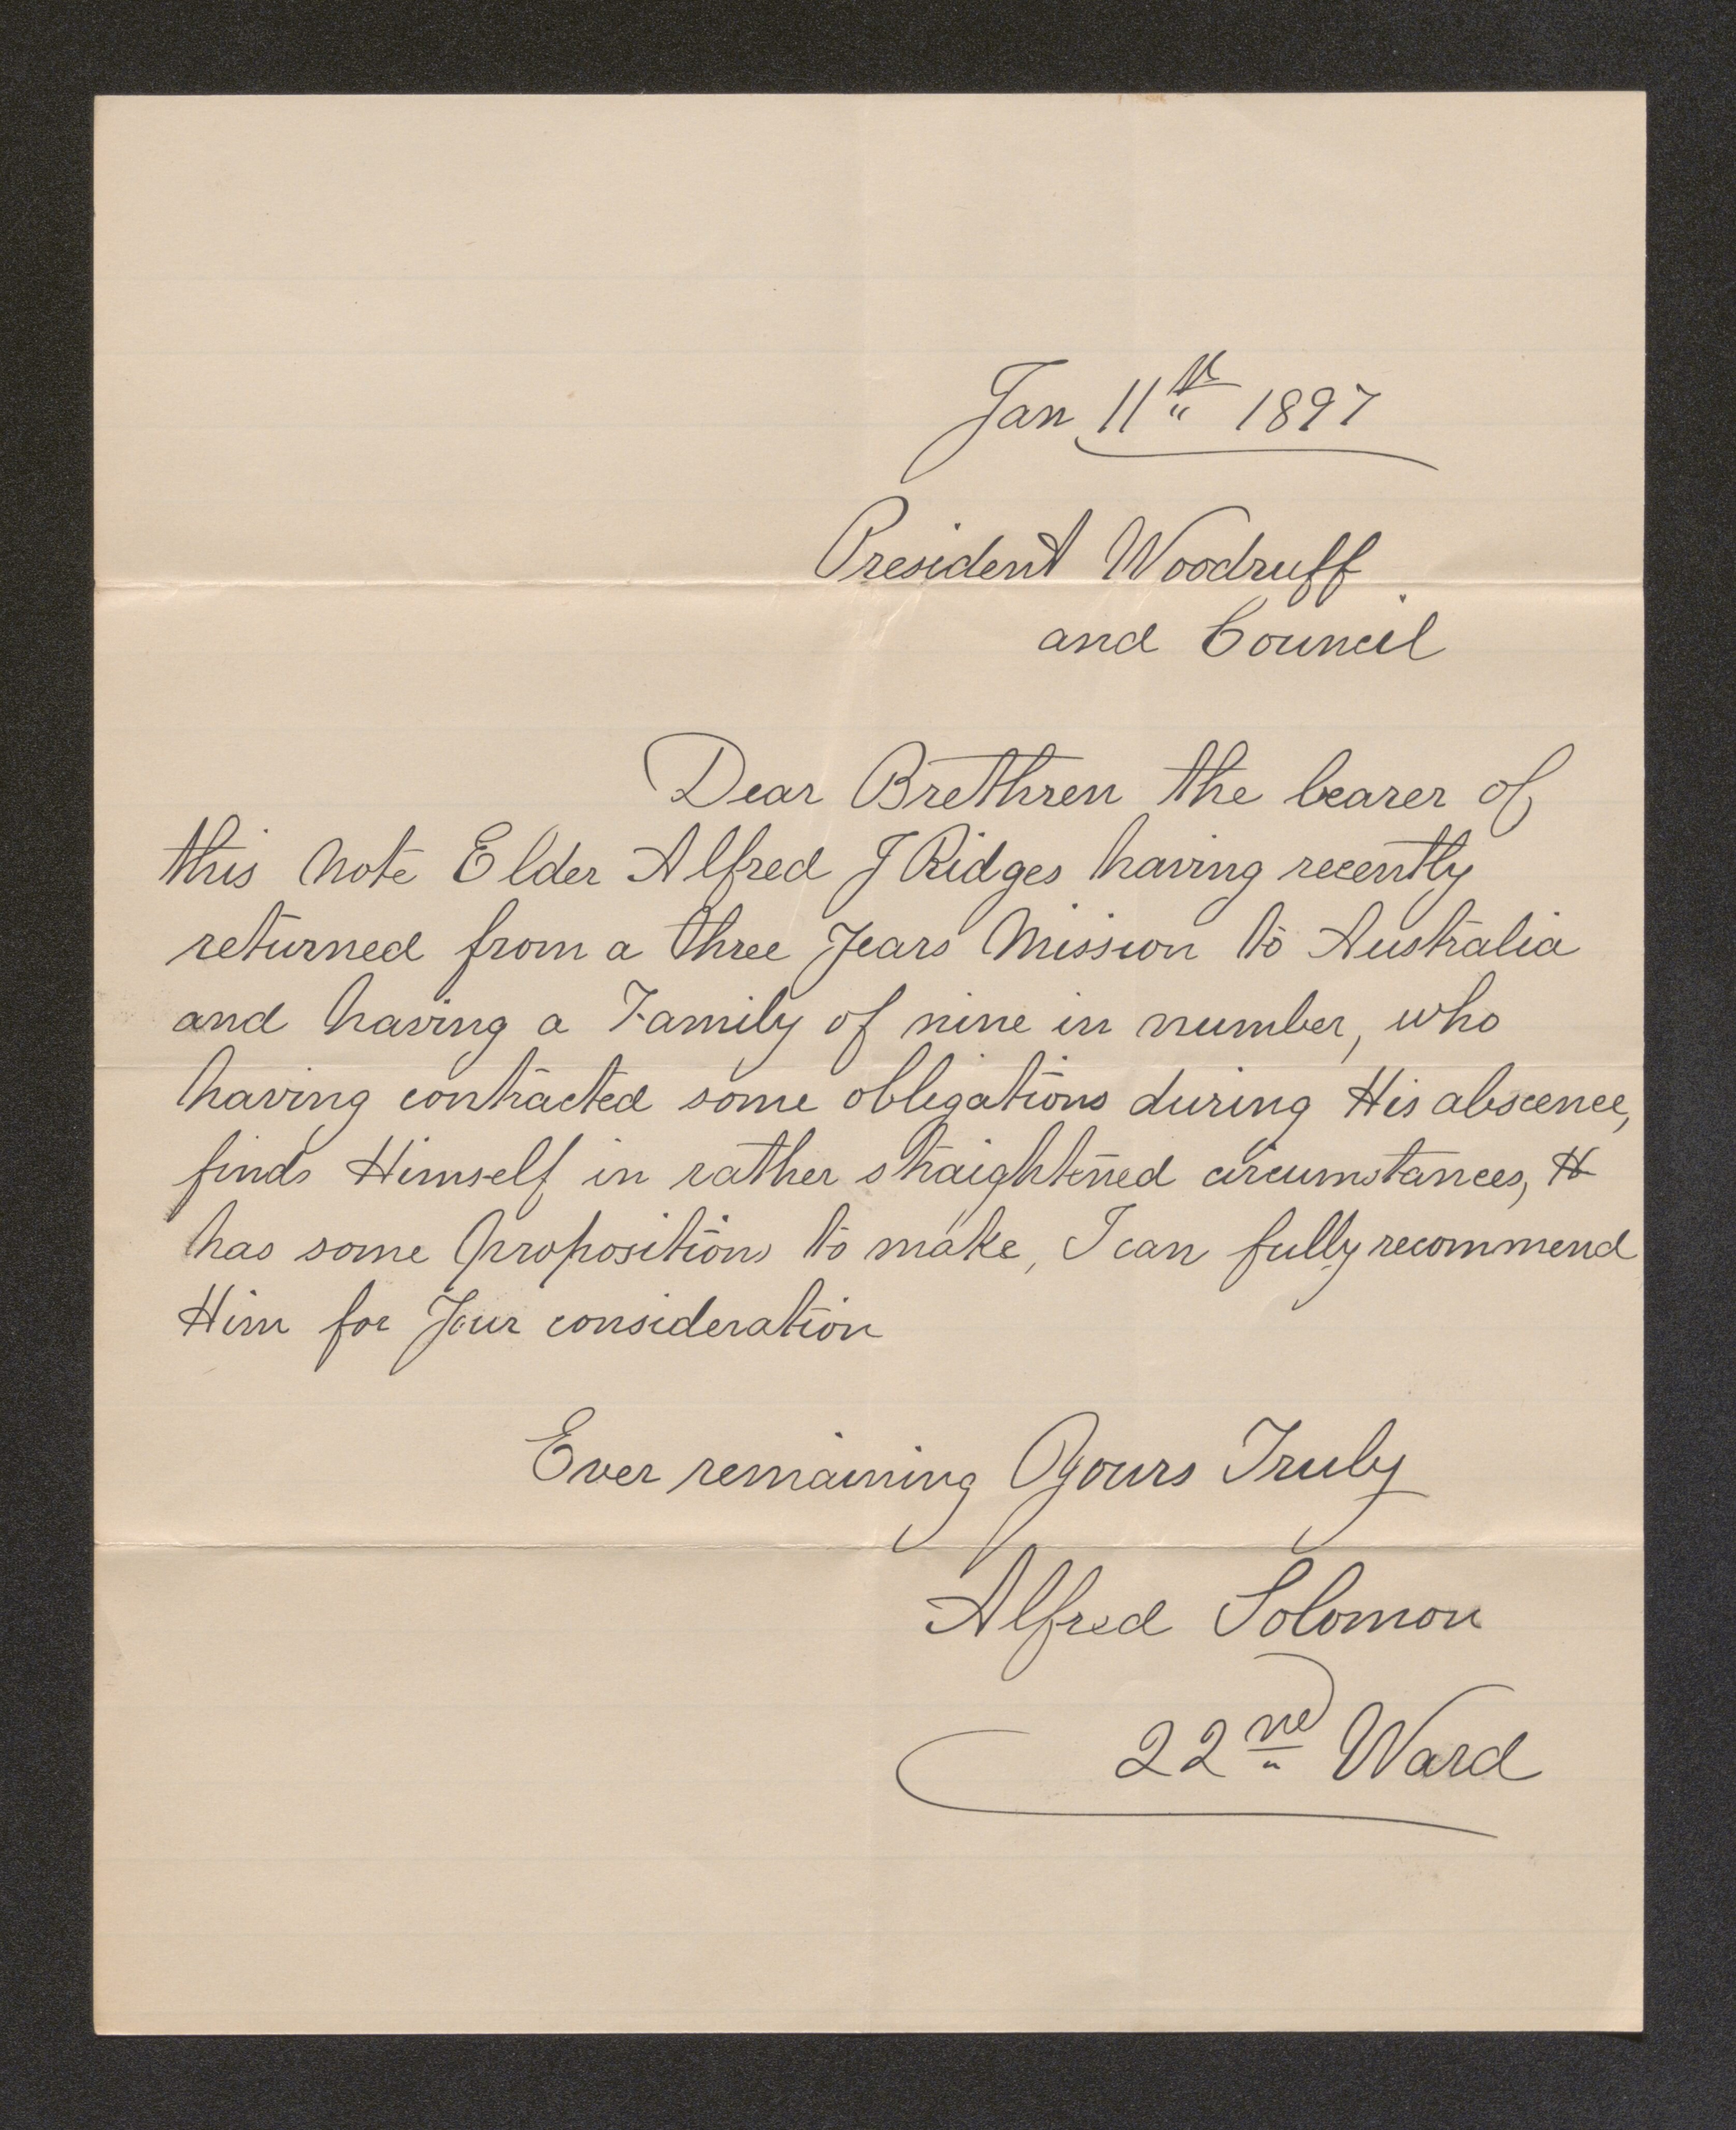 Jan 11th 1897
President Woodruff
and Council
Dear Brethren the bearer of
this note Elder Alfred J Ridges having recently
returned from a three Years Mission to Australia
and having a Family of nine in number, who
having contracted some obligations during His abscence,
finds Himself in rather straightened circumstances, He
has some propositions to make, I can fully recommend
Him for Your consideration
Ever remaining Yours Truly
Alfred Solomon
22nd Ward